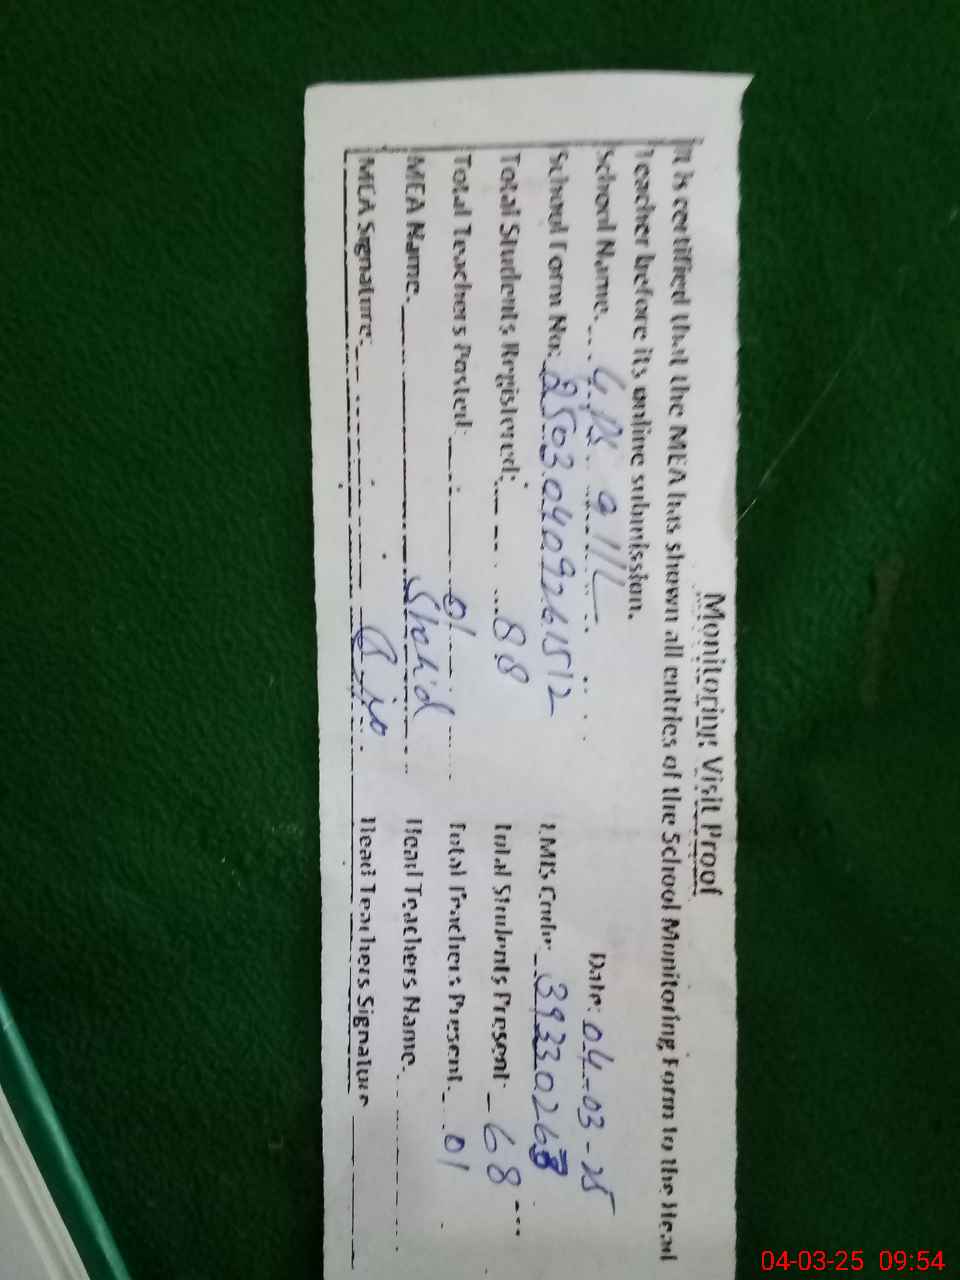 Monitoring Visit Proof
It is certified that the MEA has shown all entries of the School Monitoring Form to the Head
Teacher before its online submission.
School Name. GPS 9 11L Date: 04-03-25
School Form No: 25030409261512 EMIS Code: 39330263
Total Students Registered: 88 Total Students Present: 68
Total Teachers Posted: 01 Total Teachers Present. 01
MEA Name. Shahid Head Teachers Name.
MEA Signature: Head Teachers Signature
04-03-25 09:54